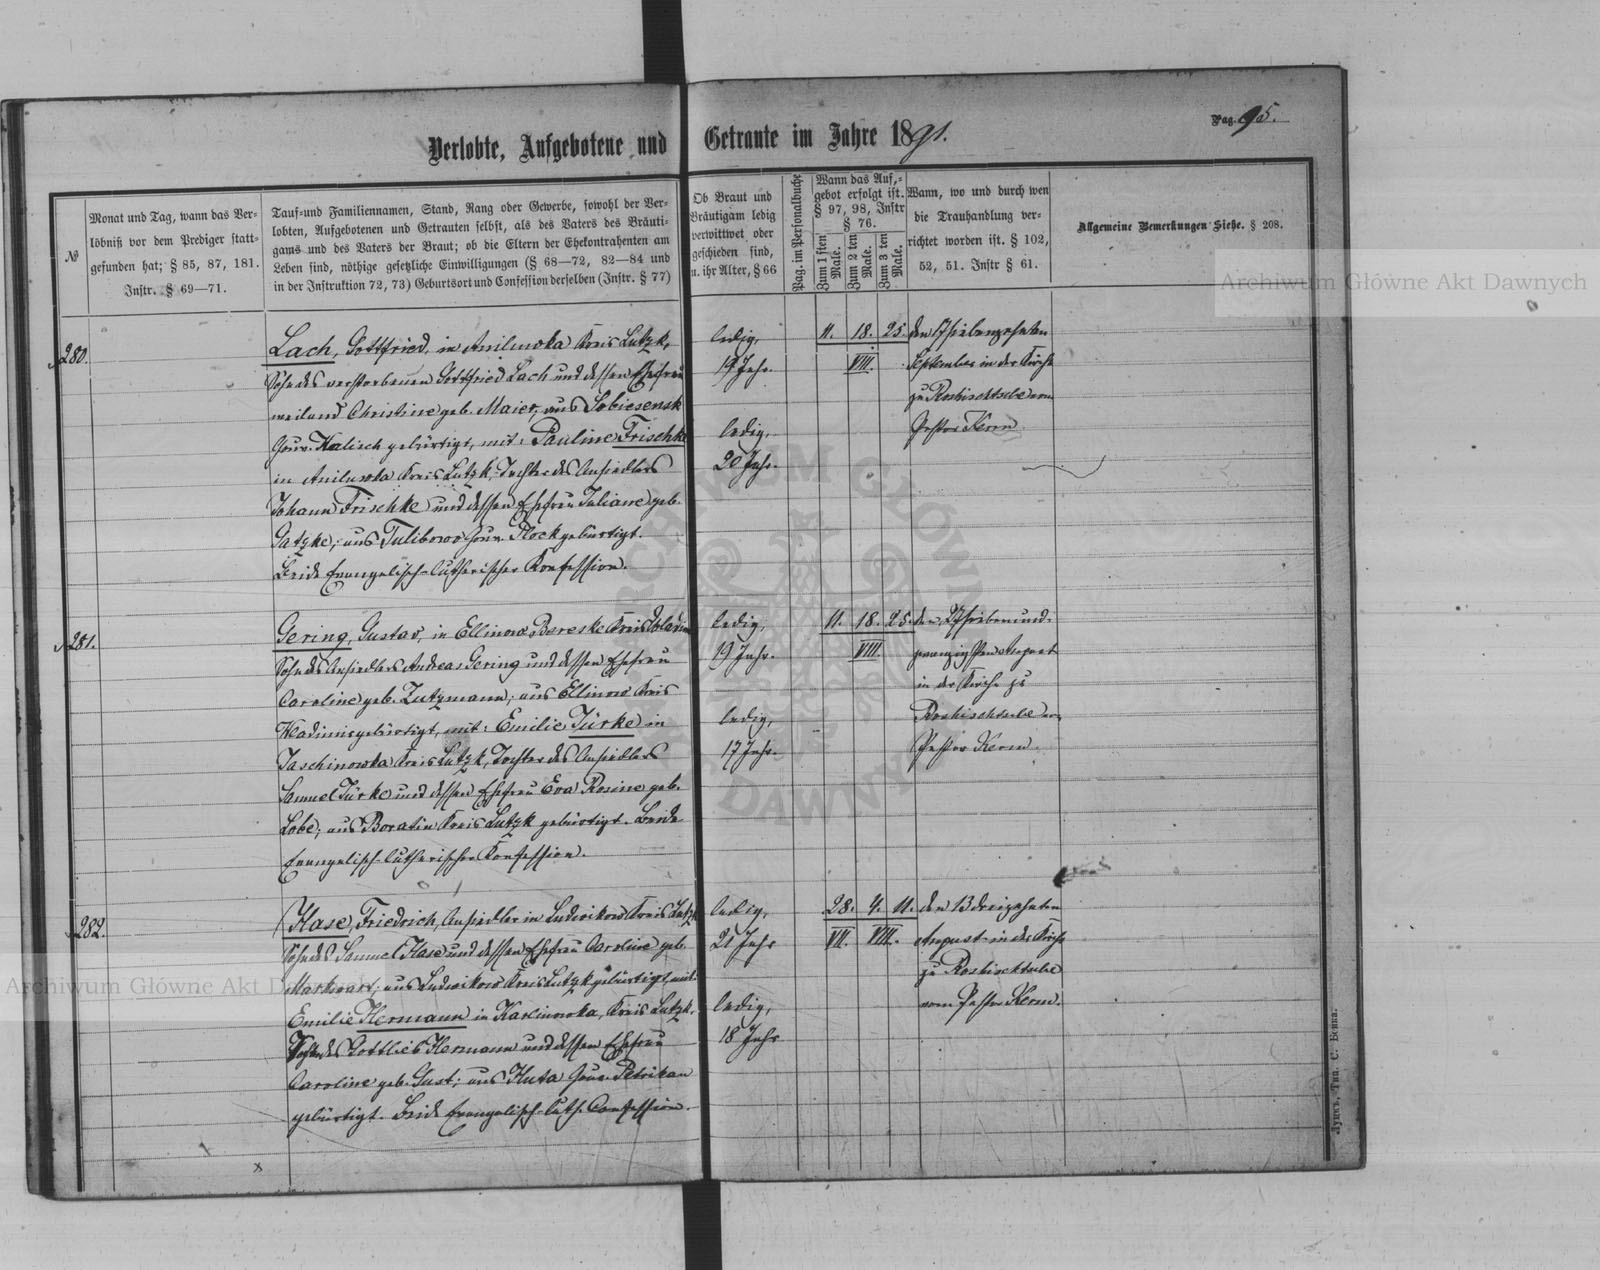 Pag. 95.
Verlobte, Aufgebotene und Getraute im Jahre 1891.
№
Monat und Tag, wann das Ver-
löbniß vor dem Prediger statt-
gefunden hat; § 85, 87, 181.
Instr. § 69—71.
Tauf- und Familiennamen, Stand, Rang oder Gewerbe, sowohl der Ver-
lobten, Aufgebotenen und Getrauten selbst, als des Vaters des Bräuti-
gams und des Vaters der Braut; ob die Eltern der Ehekontrahenten am
Leben sind, nöthige gesetzliche Einwilligungen (§ 68—72, 82—84 und
in der Instruktion 72, 73) Geburtsort und Confession derselben (Instr. § 77)
Ob Braut und
Bräutigam ledig
verwittwet oder
geschieden sind,
u. ihr Alter, § 66
Pag. im Personalbuche
Wann das Auf-
gebot erfolgt ist.
§ 97, 98, Instr
§ 76.
Zum 1 sten Male.
Zum 2 ten Male.
Zum 3 ten Male.
Wann, wo und durch wen
die Trauhandlung ver-
richtet worden ist. § 102,
52, 51. Instr § 61.
Allgemeine Bemerkungen Siehe. § 208.
280.
Lach, Gottfried, in Aniluwka Kreis Lutzk,
Sohn des verstorbenen Gottfried Lach und dessen Ehefrau
weiland Christine geb. Maier, aus Sobiesensk
Gouv. Kalisch gebürtigt, mit: Pauline Frischke
in Aniluwka Kreis Lutzk, Tochter des Ansiedlers
Johann Frischke und dessen Ehefrau Juliane geb.
Gatzke; aus Tulibowo Gouv. Plock gebürtigt.
Beide Evangelisch-lutherischer Konfession.
ledig,
19 Jahr.
ledig,
20 Jahr.
11. 18. 25.
VIII.
den 17 siebenzehnten
September in der Kirche
zu Roshischtsche vom
Pastor Kerm
281.
Gering, Gustav, in Ellinow Bereske Kreis Wladim
Sohn des Ansiedlers Andreas Gering und dessen Ehefrau
Caroline geb. Zutzmann; aus Ellinow Kreis
Wladimir gebürtigt, mit: Emilie Jürke in
Jaschinowka Kreis Lutzk, Tochter des Ansiedlers
Samuel Jürke und dessen Ehefrau Eva Rosine geb.
Lobe; aus Boratin Kreis Lutzk gebürtigt. Beide
Evangelisch-lutherischer Konfession.
ledig,
19 Jahr.
ledig,
17 Jahr.
11. 18. 25.
VIII.
den 27 siebenund-
zwanzigsten August
in der Kirche zu
Roshischtsche vom
Pastor Kerm.
282.
Hase, Friedrich, Ansiedler in Ludwikow Kreis Lutzk
Sohn des Samuel Hase und dessen Ehefrau Caroline geb.
Markwart; aus Ludwikow Kreis Lutzk gebürtigt, mit:
Emilie Hermann in Karlinowka, Kreis Lutzk,
Tochter des Gottlieb Hermann und dessen Ehefrau
Caroline geb. Gust; aus Huta Gouv. Petrikau
gebürtigt. Beide Evangelisch-luth. Confession.
ledig,
21 Jahr
ledig,
18 Jahr
28. 4. 11.
VII. VIII.
den 13 dreizehnten
August in der Kirche
zu Roshischtsche
vom Pastor Kerm.
Луцкъ, Тип. С. Бенка.
Archiwum Główne Akt Dawnych
Archiwum Główne Akt Dawnych
ARCHIWUM GŁÓWNE AKT DAWNYCH